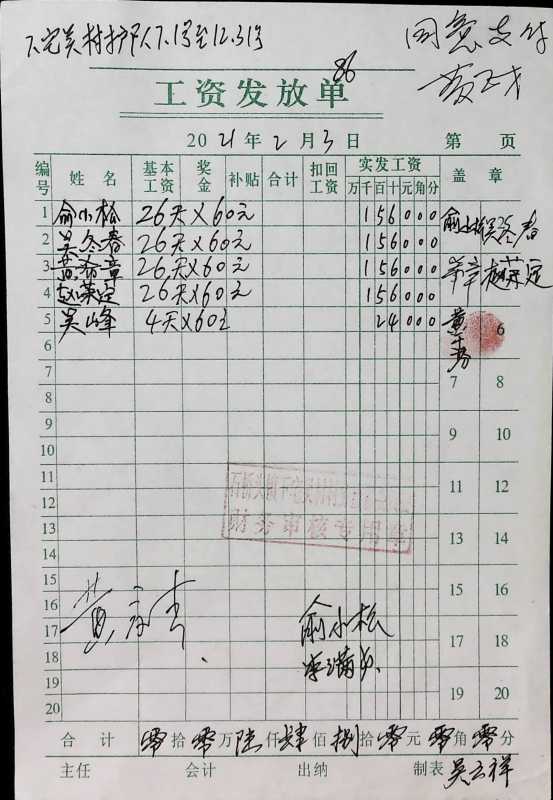 下宅吴村护队下.1号至12.31号
同意支付
86
工资发放单
2021年2月3日 第 页
编号 姓名 基本工资 奖金 补贴 合计 扣回工资 实发工资 盖章
万千百十元角分
1 俞小松 26天×60元 156000 俞小松 吴冬春
2 吴冬春 26天×60元 156000
3 黄希章 26天×60元 156000
4 赵荣定 26天×60元 156000 赵荣定
5 吴峰 4天×60元 24000 6
6
7 7 8
8
9 9 10
10
11 11 12
12
13 13 14
14
15 15 16
16
17 17 18
18
19 19 20
20
财务审核专用章
俞小松
合计 零拾零万陆仟肆佰捌拾零元零角零分
主任 会计 出纳 制表 吴云祥